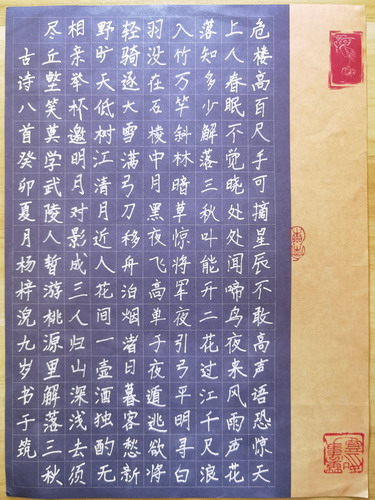 危楼高百尺手可摘星辰不敢高声语恐惊天
上人春眠不觉晓处处闻啼鸟夜来风雨声花
落知多少解落三秋叶能开二花过江千尺浪
入竹万竿斜林暗草惊将军夜引弓平明寻白
羽没在石棱中月黑夜飞高单于夜遁逃欲将
轻骑逐大雪满弓刀移舟泊烟渚日暮客愁新
野旷天低树江清月近人花间一壶酒独酌无
相亲举杯邀明月对影成三人归山深浅去须
尽丘壑笑莫学武陵人暂游桃源里解落三秋
古诗八首癸卯夏月杨梓滉九岁书于筑